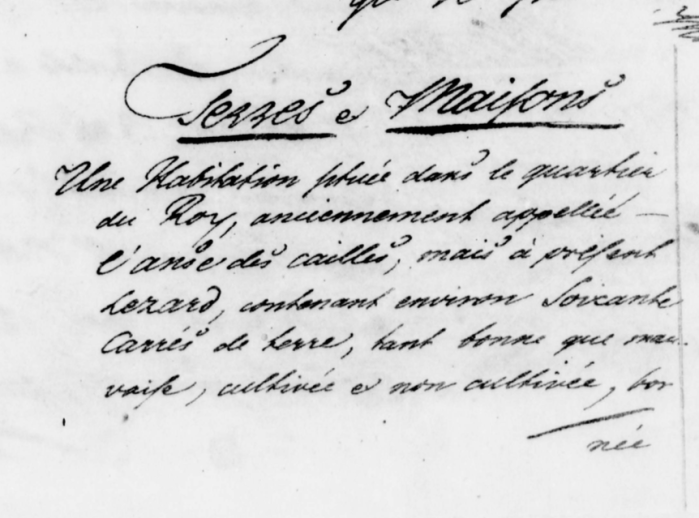 Terres e Maisons
Une Habitation située dans le quartier
du Roy, anciennement appellée –
l'anse des cailles, mais à présent
Lezard, contenant environ Soixante
Carrés de terre, tant bonne que mau-
vaise, cultivée e non cultivée, bor
née